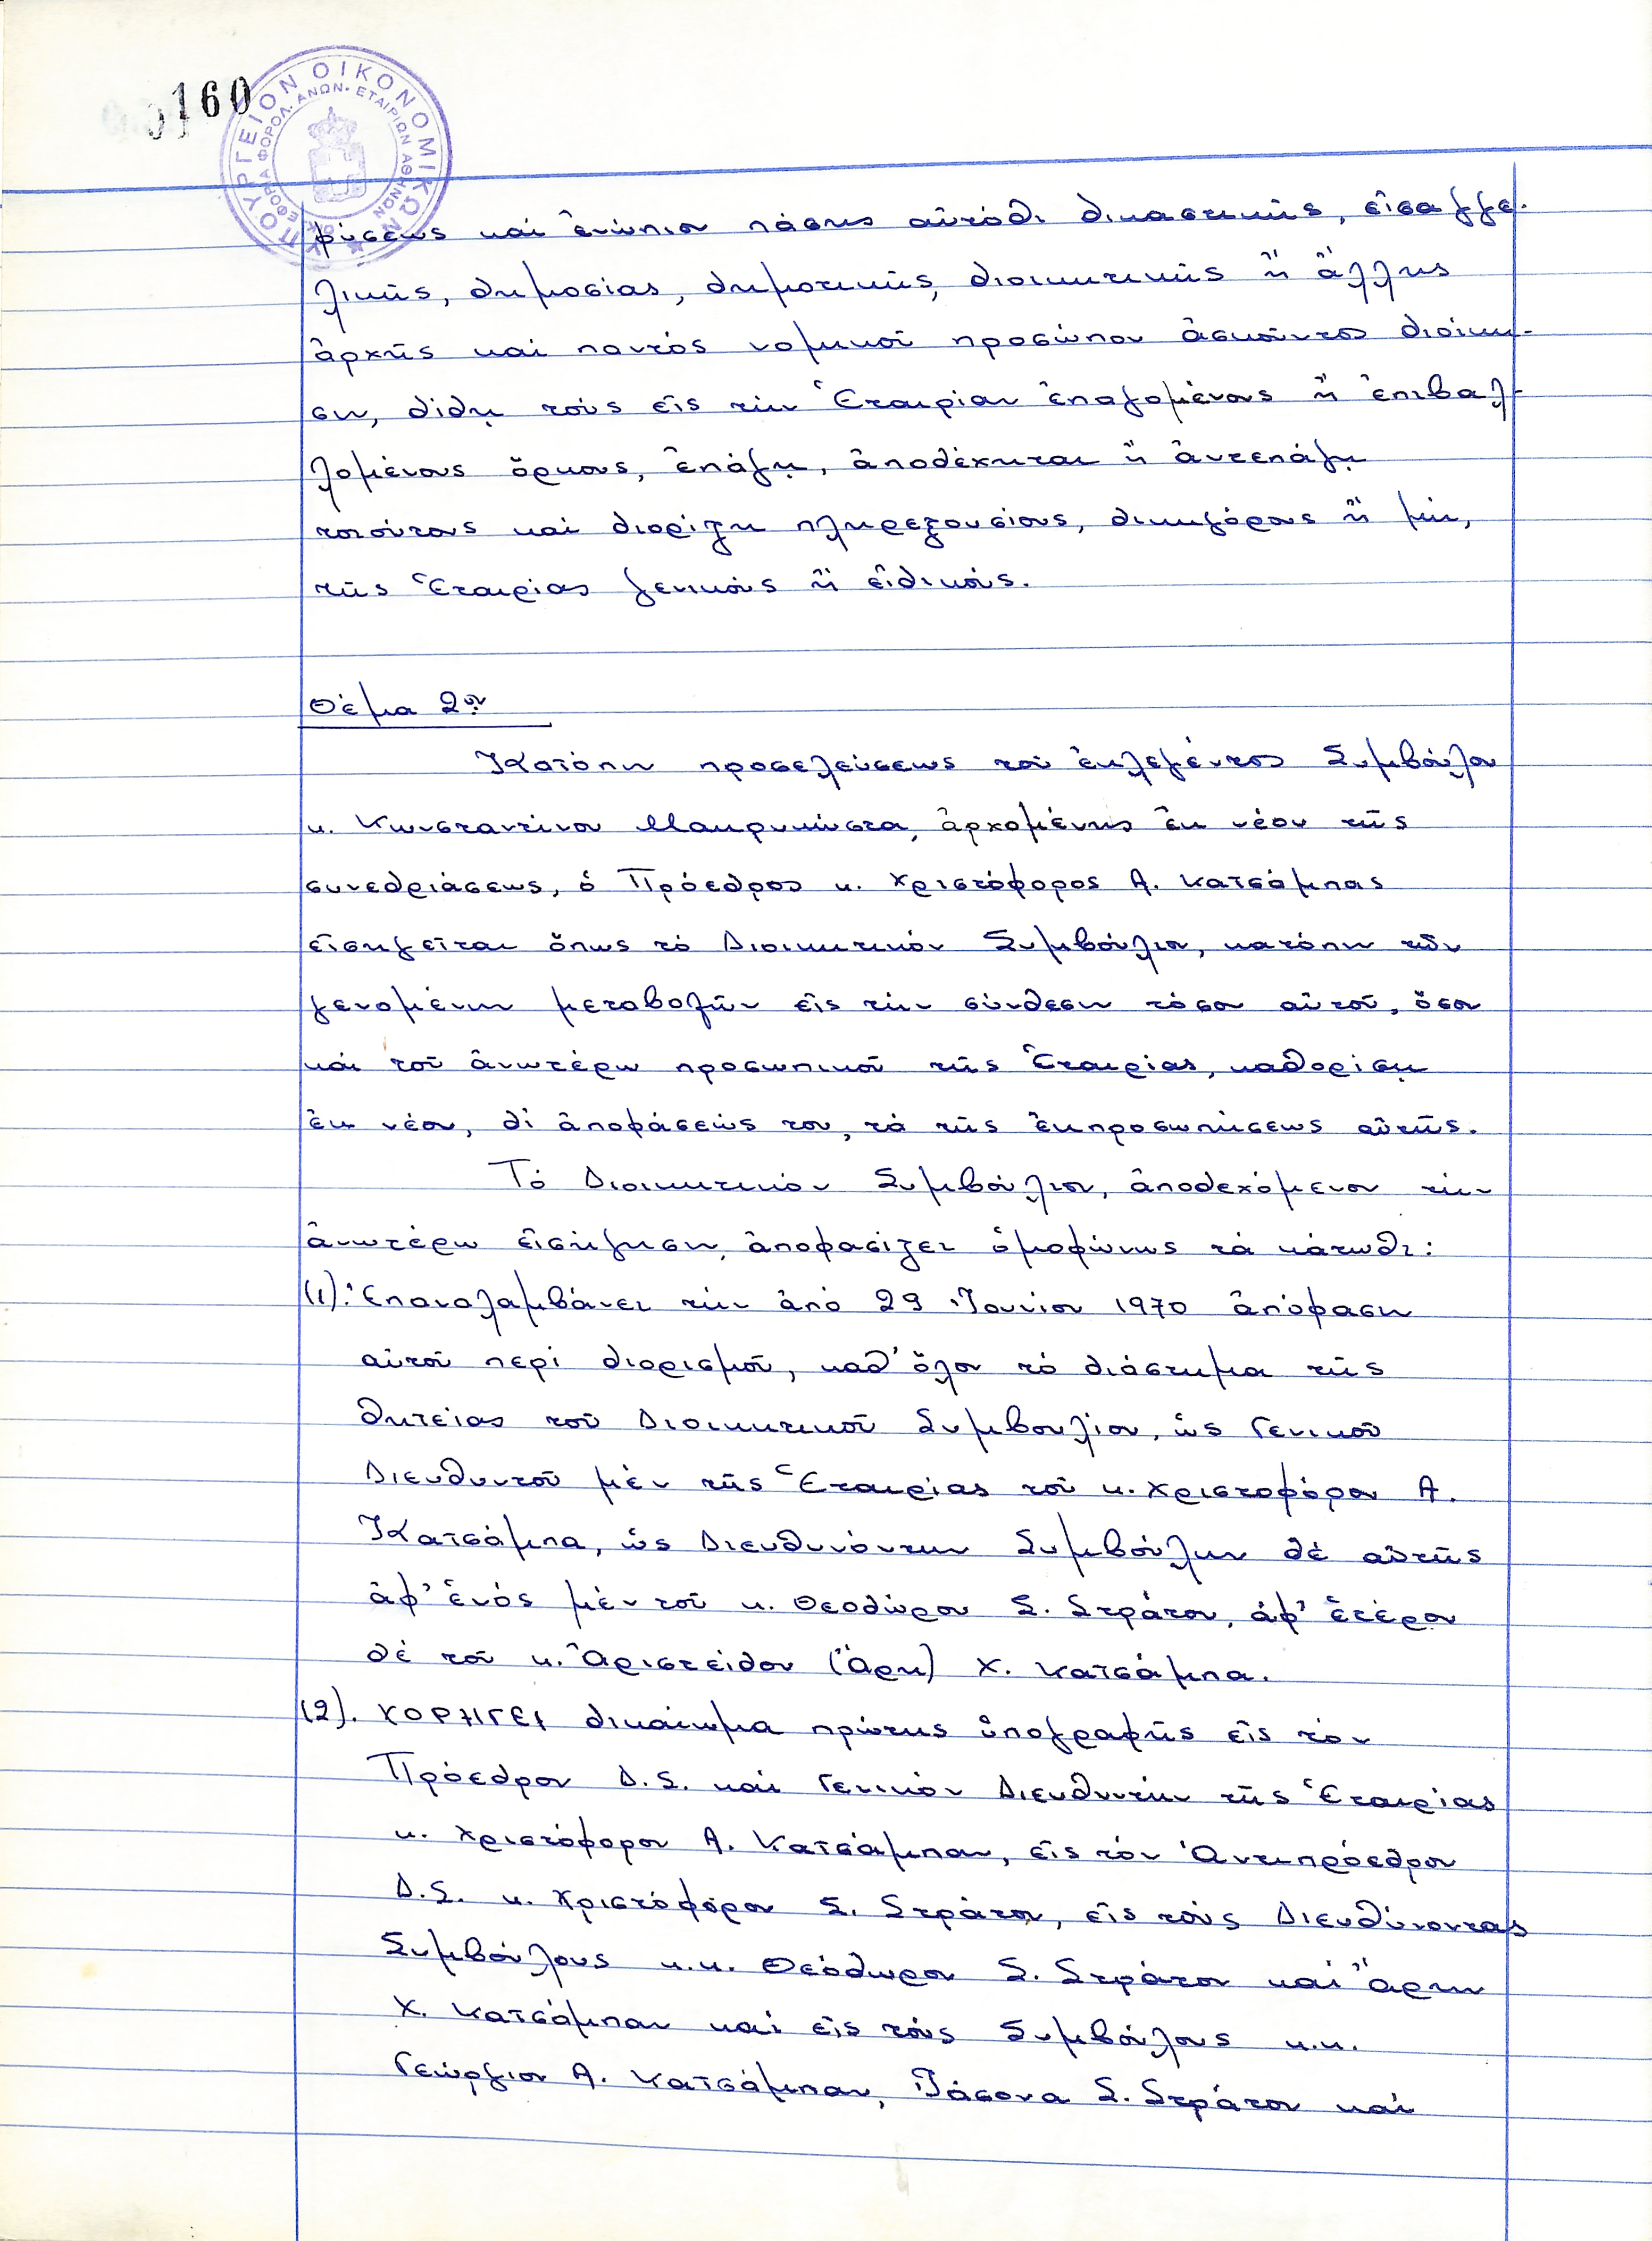 160
ΥΠΟΥΡΓΕΙΟΝ ΟΙΚΟΝΟΜΙΚΩΝ
ΕΦΟΡΙΑ ΦΟΡΟΛ. ΑΝΩΝ. ΕΤΑΙΡΙΩΝ ΑΘΗΝΩΝ
φύσεως καί ἐνώπιον πάσης αὐτόθι δικαστικῆς, εἰσαγγε-
λικῆς, δημοσίας, δημοτικῆς, διοικητικῆς ἤ ἄλλης
ἀρχῆς καί παντός νομικοῦ προσώπου ἀσκοῦντος διοίκη-
σιν, δίδῃ τούς εἰς τήν Ἑταιρίαν ἐπαγομένους ἤ ἐπιβαλ-
λομένους ὅρκους, ἐπάγῃ, ἀποδέχηται ἤ ἀντεπάγῃ
τοιούτους καί διορίζῃ πληρεξουσίους, δικηγόρους ἤ μή,
τῆς Ἑταιρίας γενικούς ἤ εἰδικούς.
Θέμα 2ον
Κατόπιν προσελεύσεως τοῦ ἐκλεγέντος Συμβούλου
κ. Κωνσταντίνου Μακρυκώστα, ἀρχομένης ἐκ νέου τῆς
συνεδριάσεως, ὁ Πρόεδρος κ. Χριστόφορος Α. Κατσάμπας
εἰσηγεῖται ὅπως τό Διοικητικόν Συμβούλιον, κατόπιν τῶν
γενομένων μεταβολῶν εἰς τήν σύνθεσιν τόσον αὐτοῦ, ὅσον
καί τοῦ ἀνωτέρω προσωπικοῦ τῆς Ἑταιρίας, καθορίσῃ
ἐκ νέου, δι' ἀποφάσεώς του, τά τῆς ἐκπροσωπήσεως αὐτῆς.
Τό Διοικητικόν Συμβούλιον, ἀποδεχόμενον τήν
ἀνωτέρω εἰσήγησιν, ἀποφασίζει ὁμοφώνως τά κάτωθι:
(1). Ἐπαναλαμβάνει τήν ἀπό 29 Ἰουνίου 1970 ἀπόφασιν
αὐτοῦ περί διορισμοῦ, καθ' ὅλον τό διάστημα τῆς
θητείας τοῦ Διοικητικοῦ Συμβουλίου, ὡς Γενικοῦ
Διευθυντοῦ μέν τῆς Ἑταιρίας τοῦ κ. Χριστοφόρου Α.
Κατσάμπα, ὡς Διευθυνόντων Συμβούλων δέ αὐτῆς
ἀφ' ἑνός μέν τοῦ κ. Θεοδώρου Σ. Στράτου, ἀφ' ἑτέρου
δέ τοῦ κ. Ἀριστείδου (Ἄρη) Χ. Κατσάμπα.
(2). ΧΟΡΗΓΕΙ δικαίωμα πρώτης ὑπογραφῆς εἰς τόν
Πρόεδρον Δ.Σ. καί Γενικόν Διευθυντήν τῆς Ἑταιρίας
κ. Χριστόφορον Α. Κατσάμπαν, εἰς τόν Ἀντιπρόεδρον
Δ.Σ. κ. Χριστόφόρον Σ. Στράτον, εἰς τούς Διευθύνοντας
Συμβούλους κ.κ. Θεόδωρον Σ. Στράτον καί Ἄρην
Χ. Κατσάμπαν καί εἰς τούς Συμβούλους κ.κ.
Γεώργιον Α. Κατσάμπαν, Ἰάσονα Σ. Στράτον καί